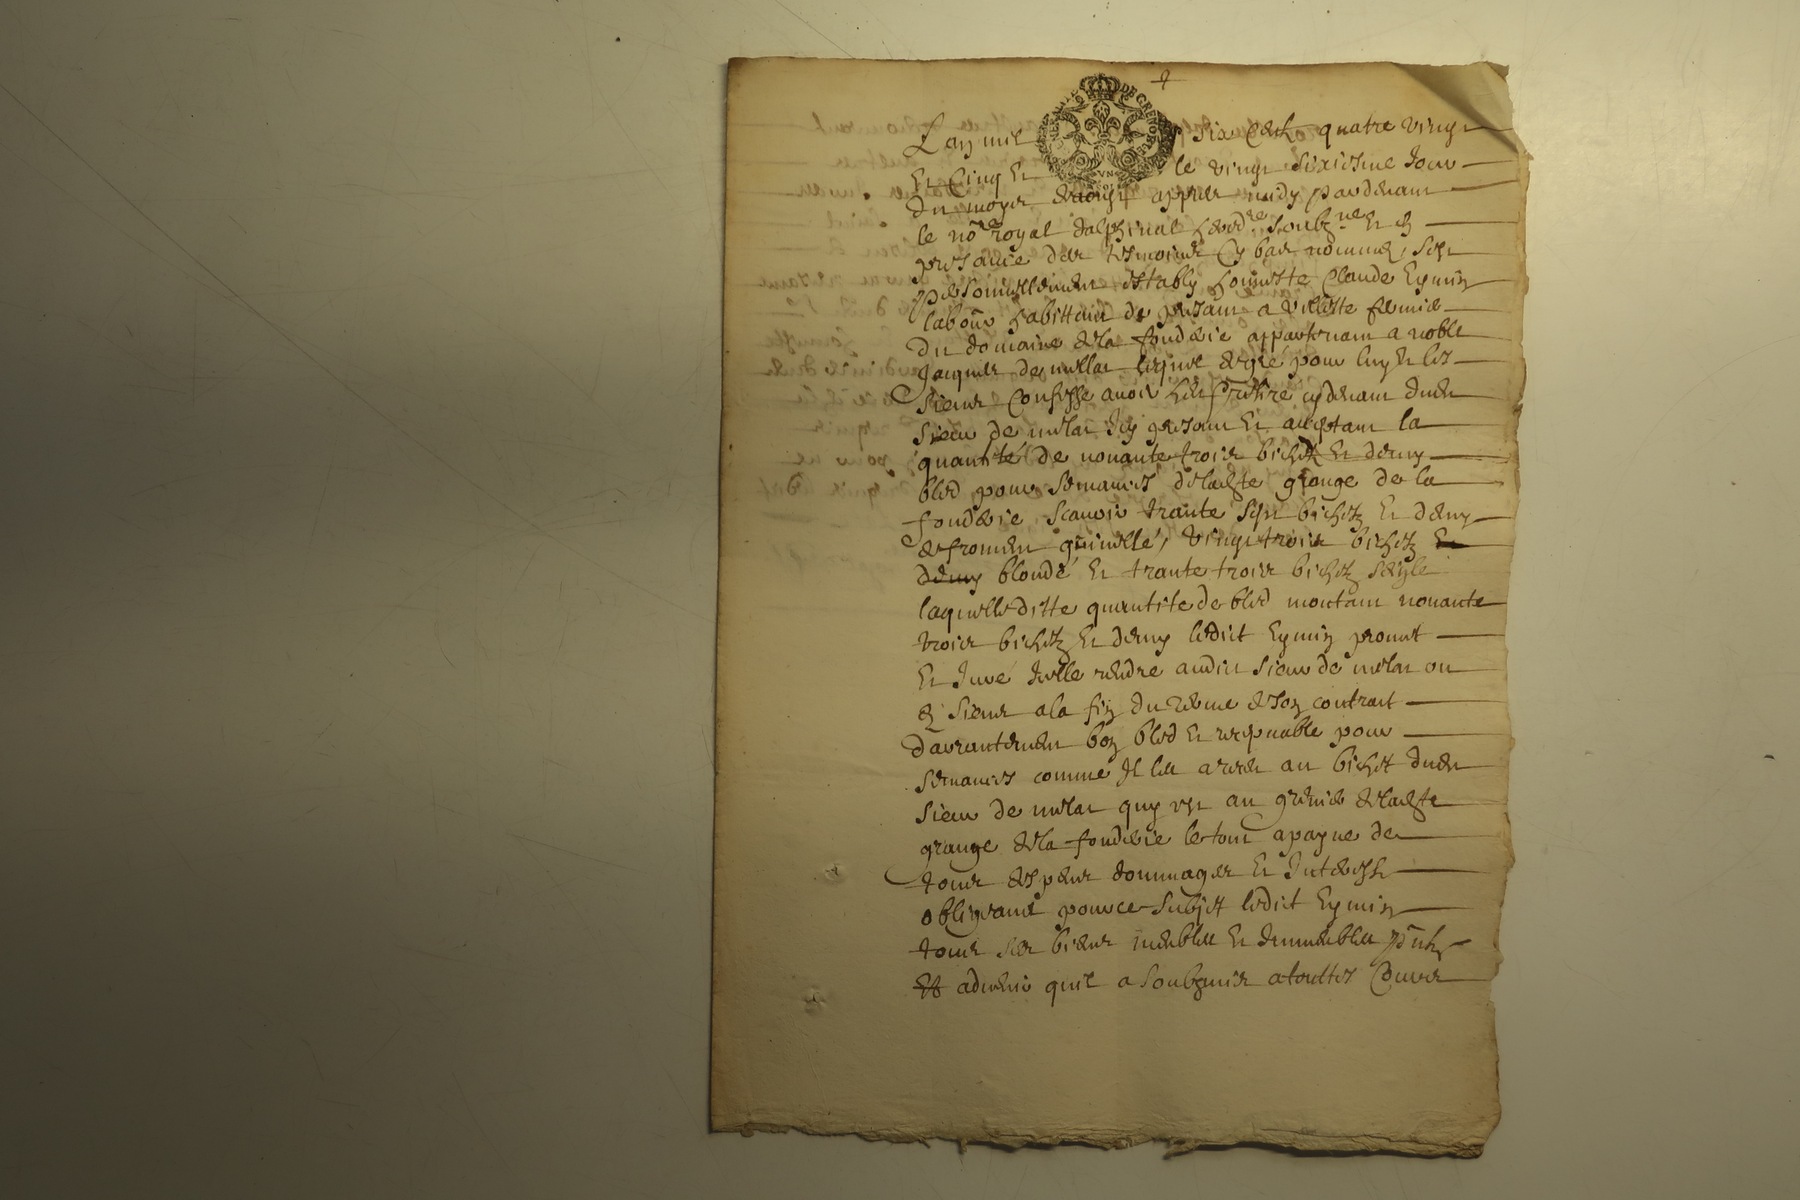 GENERALITE DE GRENOBLE
VN SOL
L'an mil six centz quatre vingt
et cinq et le vingt sixiesme jour
du moys d'aoust appres midy pardevant
le no.re royal dalphinal hered.re soubz.ne et en
presance des tesmoins cy bas nommes, s'est
personnellement estably honneste Claude Eymin
labour habittant de presant a Villette fermier
du domaine de la fonderie appartenant a noble
Jacques de mellat lequel de gré pour luy et les
siens confesse avoir heu et retiré cydevant dudit
sieur de mellat icy presant et acceptant la
quantité de nonante trois bichetz et demy
bled pour semances de ladite grange de la
fonderie scavoir trante sept bichetz et demy
de froment vingt trois bichetz et
demy blondé et trante trois bichetz seigle
laquelle ditte quantite de bled montant nonante
trois bichetz et demy ledict Eymin promet
et juré icelle rendre audit sieur de mellat ou
es siens a la fin du terme de son contract
d'arrantement bon bled et recepvable pour
semances comme il les a receu au bichet dudit
sieur de mellat quy est au grenier de ladite
grange de la fonderie le tout a payne de
tous despens dommages et interestz
obligeant pour ce subjet ledict Eymin
tous ses biens meubles et immeubles p.ntz
et advenir qu'il a soubzmis a touttes Cours